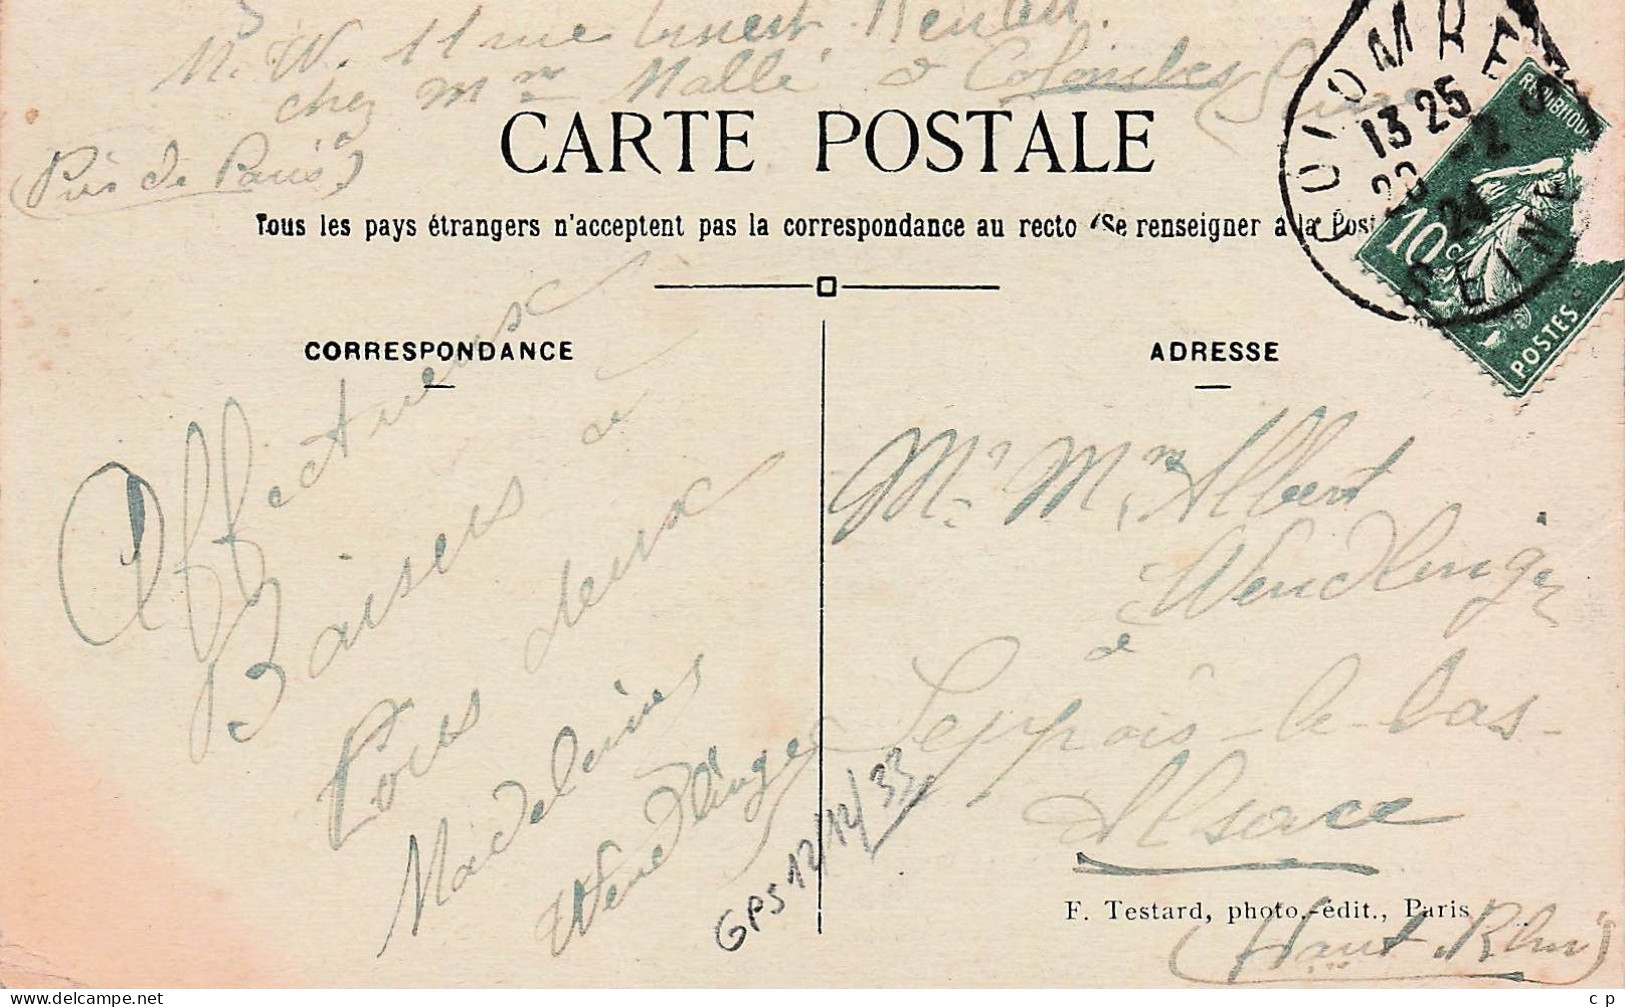 M. W. 11 rue Ernest Renan.
chez Mme Mallé à Colombes (Seine
(Près de Paris)
CARTE POSTALE
Tous les pays étrangers n'acceptent pas la correspondance au recto (Se renseigner à la Post
COLOMBES
13 25
-2
24
SEINE
10c
POSTES
CORRESPONDANCE
ADRESSE
Affectueux
Baisers à
Vous deux
Madeleine
Wendlinger
GPS 12/12/33
Mr. Mme Albert
Wendlinger
à
Seppois-le-bas-
Alsace
F. Testard, photo.-édit., Paris
(Haut-Rhin)
www.delcampe.net
c_p